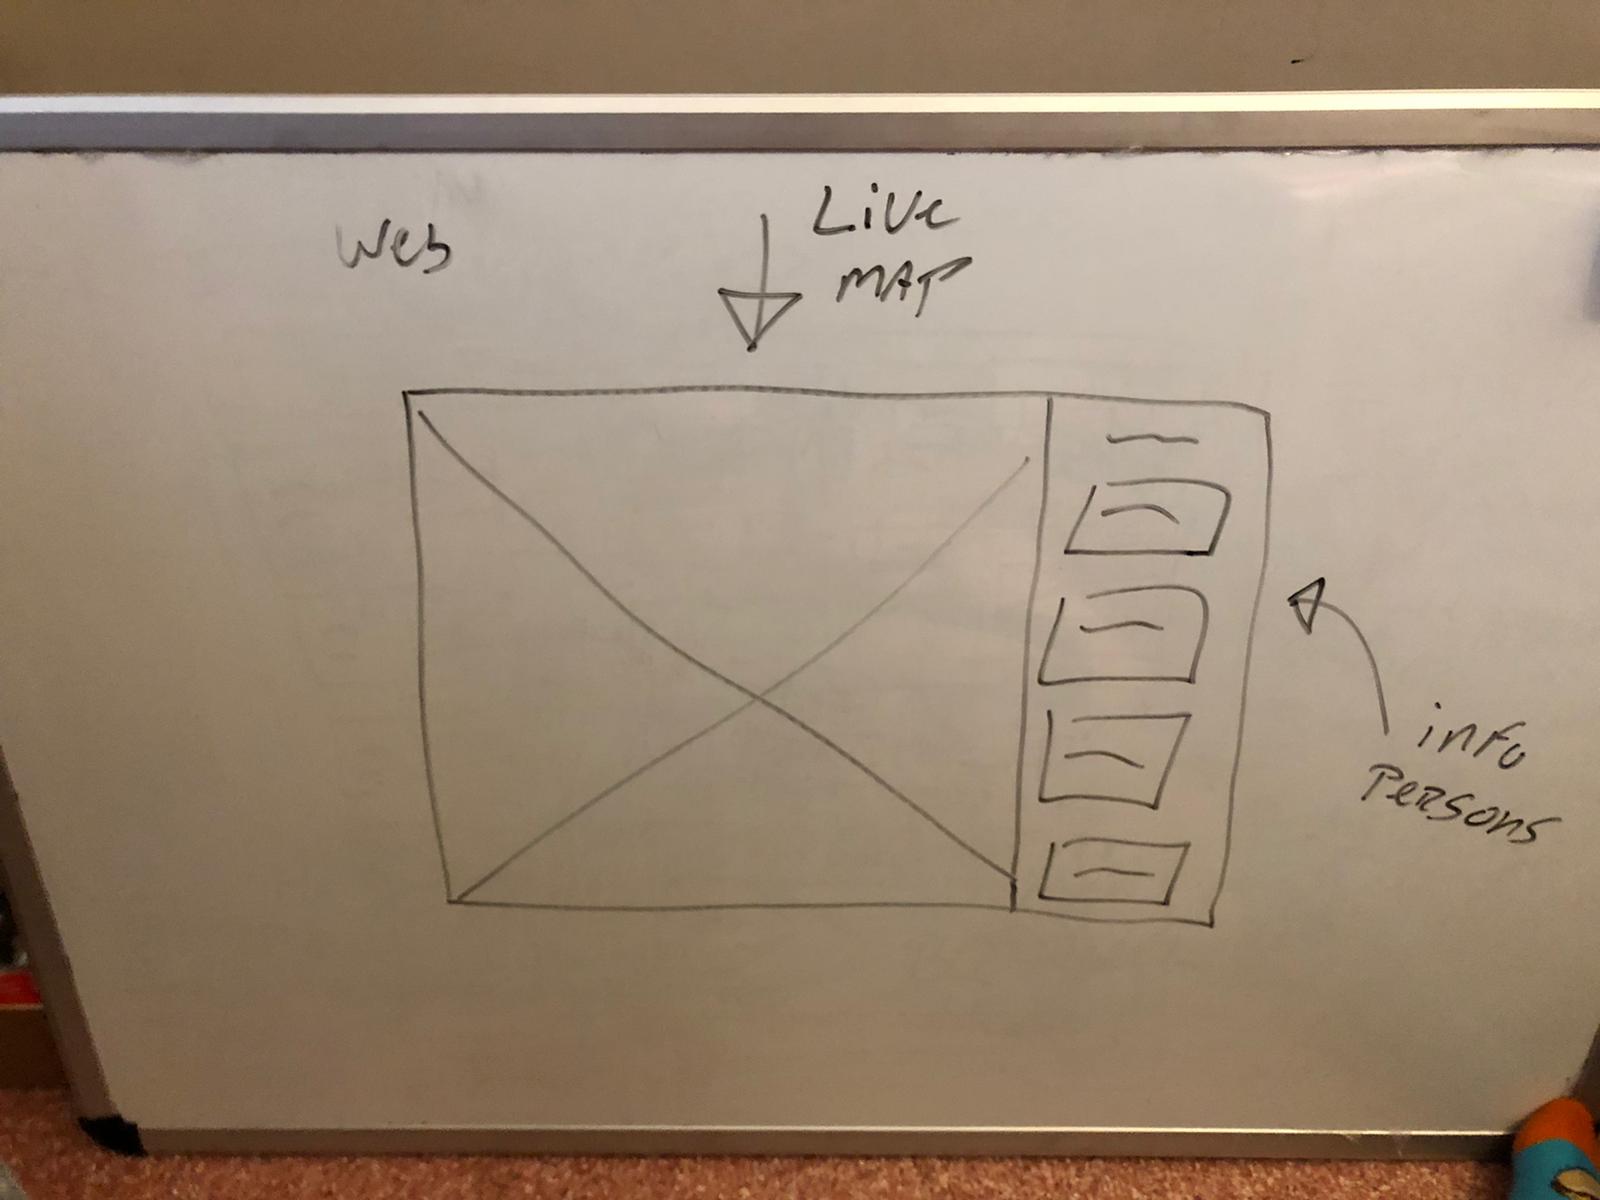 Web
Live
MAP
info
Persons